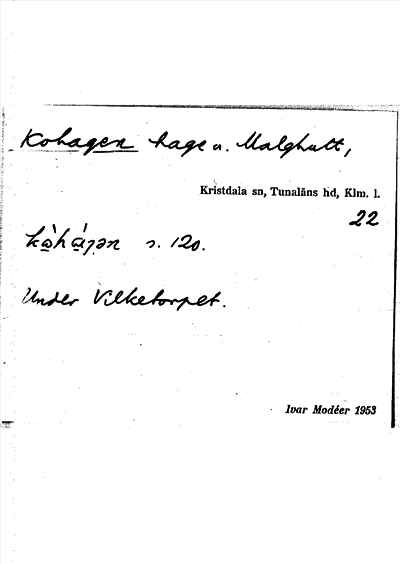 Kohagen hage u. Malghult,
Kristdala sn, Tunaläns hd, Klm. l.
22
s. 120.
Under Vilketorpet.
Ivar Modéer 1953